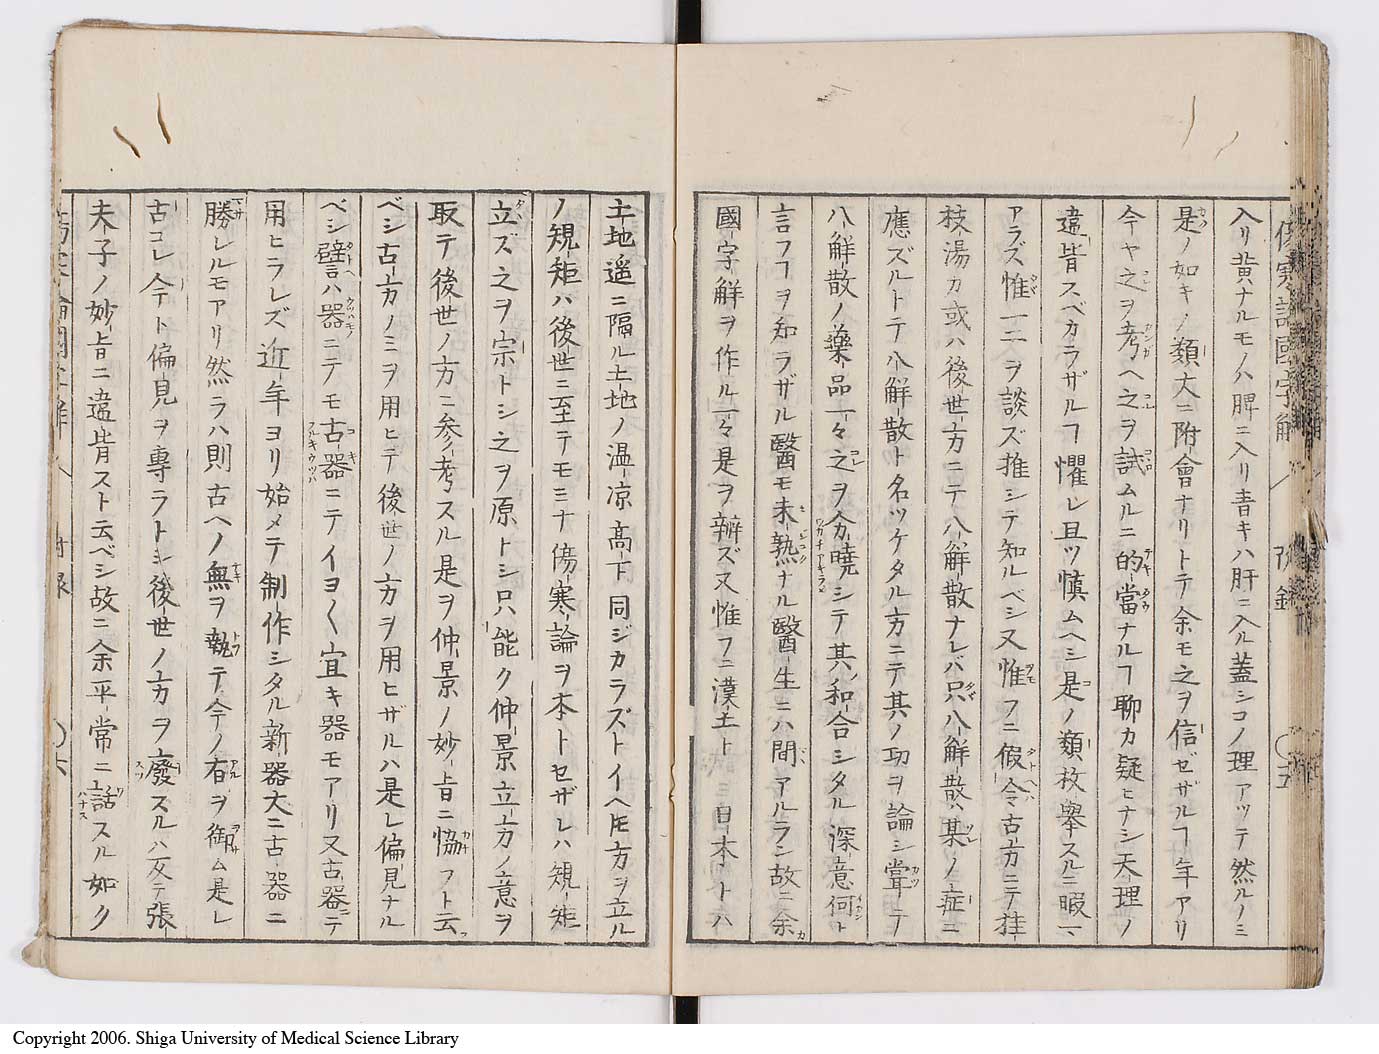 傷寒論國字解 附録 ○五
入リ黄ナルモノハ脾ニ入リ青キハ肝ニ入ル蓋シコノ理アツテ然ルノミ
是ノ如キノ類大ニ附會ナリトテ余モ之ヲ信ゼザルヿ年アリ
今ヤ之ヲ考ヘ之ヲ試ムルニ的當ナルヿ聊カ疑ヒナシ天理ノ
違背スベカラザルヿ懼レ且ツ慎ムヘシ是ノ類枚擧スルニ暇マ
アラズ惟一二ヲ談ズ推シテ知ルベシ又惟フニ假令古方ニテ桂
枝湯カ或ハ後世方ニテ八解散ナレバ只八解散ハ某ノ症ニ
應ズルトテ八解散ト名ツケタル方ニテ其ノ功ヲ論シ甞ーテ
八解散ノ藥品一々之ヲ分曉シテ其ノ和合シタル深意何ト
言フヿヲ知ラザル醫モ未熟ナル醫生ニハ間アルラン故ニ余
國字解ヲ作ル一々是ヲ辨ズ又惟フニ漢土ト日本トハ
土地遥ニ隔ル土地ノ温凉髙下同ジカラズトイヘ𪜈方ヲ立ル
ノ規矩ハ後世ニ至テモミナ傷寒論ヲ本トセザレハ規矩
立ズ之ヲ宗トシ之ヲ原トシ只能ク仲景立方ノ意ヲ
取テ後世ノ方ニ参考スル是ヲ仲景ノ妙旨ニ恊フト云フ
ベシ古方ノミヲ用ヒテ後世ノ方ヲ用ヒザルハ是レ偏見ナル
ベシ譬ハ器ニテモ古器ニテイヨ〱宜キ器モアリ又古器ニテ
用ヒラレズ近年ヨリ始メテ制作シタル新器大ニ古器ニ
勝レルモアリ然ラハ則古ヘノ無ヲ執テ今ノ有ヲ御ム是レ
古コレ今テト偏見ヲ專ラトシ後世ノ方ヲ廢スルハ反テ張
夫子ノ妙旨ニ違背スト云ベシ故ニ余平常ニ話スル如ク
傷寒論國字解 附録 ○六
Copyright 2006. Shiga University of Medical Science Library